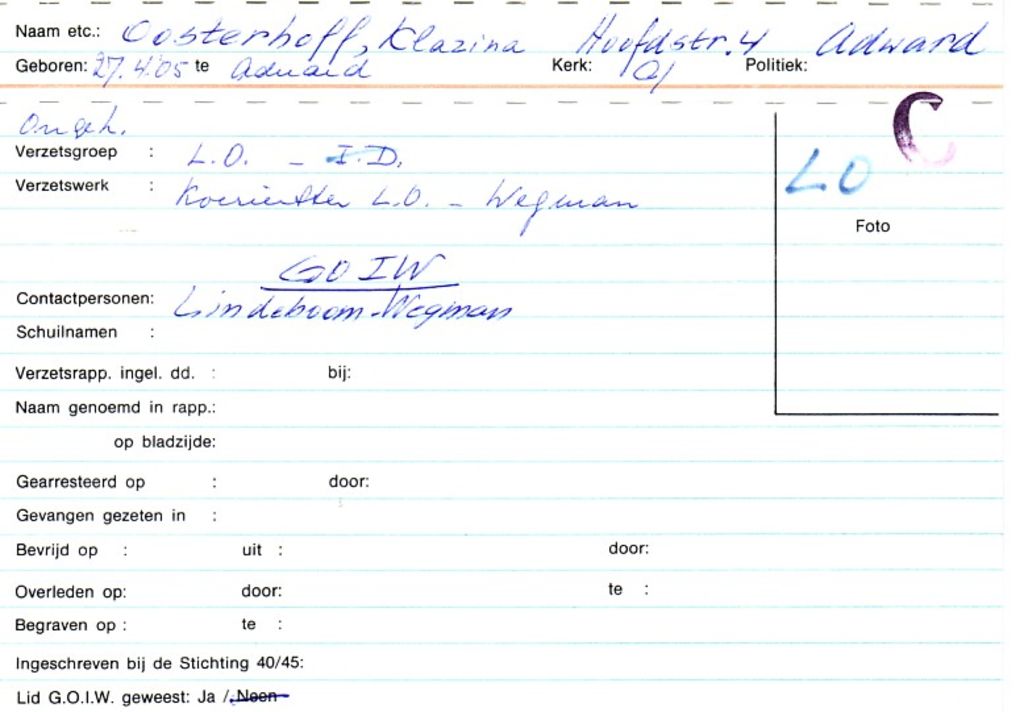 Naam etc.: Oosterhoff, Klazina Hoofdstr. 4 Adward
Geboren: 27.4.'05 te Aduard Kerk: Politiek:
Ongeh.
C
Verzetsgroep : L.O. - I.D.
LO
Verzetswerk : Koerierster L.O. - Wegman
Foto
GOIW
Contactpersonen: Lindeboom-Wegman
Schuilnamen :
Verzetsrapp. ingel. dd. : bij:
Naam genoemd in rapp.:
op bladzijde:
Gearresteerd op : door:
Gevangen gezeten in :
Bevrijd op : uit : door:
Overleden op: door: te :
Begraven op : te :
Ingeschreven bij de Stichting 40/45:
Lid G.O.I.W. geweest: Ja / Neen